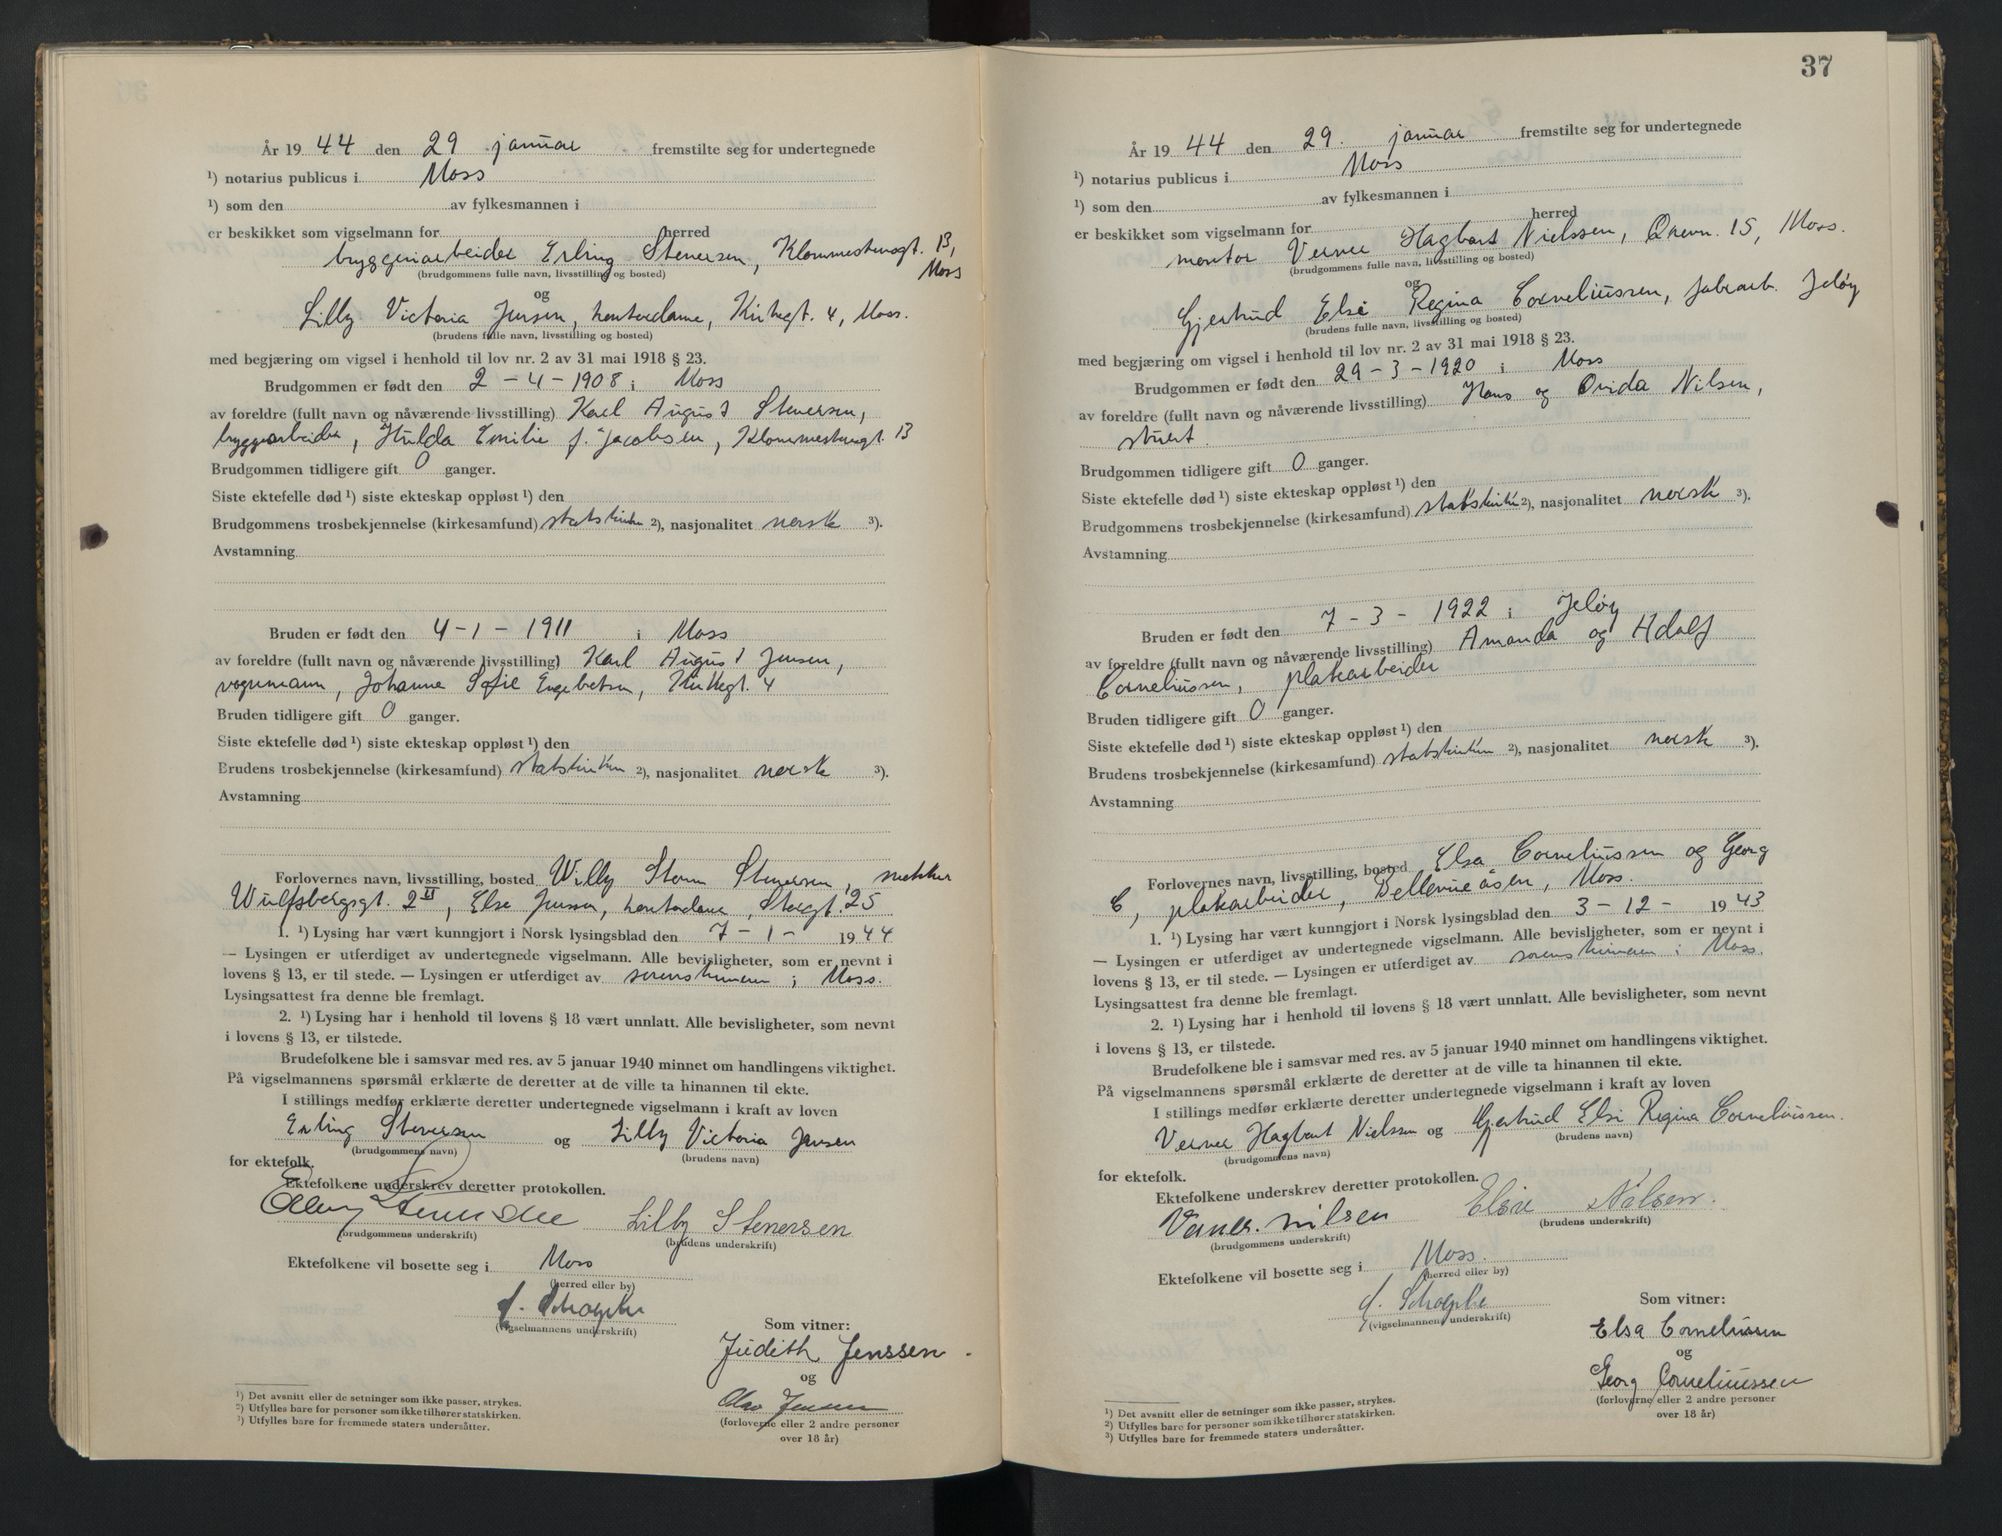 År 1944 den 29 januar fremstilte seg for undertegnede
¹) notarius publicus i Moss
¹) som den av fylkesmannen i
er beskikket som vigselmann for herred
bryggeriarbeider Erling Stenersen, Klommestensgt. 13,
Moss
(brudgommens fulle navn, livsstilling og bosted)
og
Lilly Victoria Jensen, kontordame, Kirkegt. 4, Moss.
(brudens fulle navn, livsstilling og bosted)
med begjæring om vigsel i henhold til lov nr. 2 av 31 mai 1918 § 23.
Brudgommen er født den 2-4-1908 i Moss
av foreldre (fullt navn og nåværende livsstilling) Karl August Stenersen,
bryggearbeider, Hulda Emilie f. Jacobsen, Klommestensgt. 13
Brudgommen tidligere gift 0 ganger.
Siste ektefelle død ¹) siste ekteskap oppløst ¹) den
Brudgommens trosbekjennelse (kirkesamfund) statskirken ²), nasjonalitet norsk ³).
Avstamning
Bruden er født den 4-1-1911 i Moss
av foreldre (fullt navn og nåværende livsstilling) Karl August Jensen,
vognmann, Johanne Sofie Engebretsen, Kirkegt. 4
Bruden tidligere gift 0 ganger.
Siste ektefelle død ¹) siste ekteskap oppløst ¹) den
Brudens trosbekjennelse (kirkesamfund) statskirken ²), nasjonalitet norsk ³).
Avstamning
Forlovernes navn, livsstilling, bosted Willy Storm Stenersen, snekker
Wulfsbergsgt. 2 II, Else Jensen, kontordame, Storgt. 25
1. ¹) Lysing har vært kunngjort i Norsk lysingsblad den 7-1- 1944
— Lysingen er utferdiget av undertegnede vigselmann. Alle bevisligheter, som er nevnt i
lovens § 13, er til stede. — Lysingen er utferdiget av sorenskriveren i Moss.
Lysingsattest fra denne ble fremlagt.
2. ¹) Lysing har i henhold til lovens § 18 vært unnlatt. Alle bevisligheter, som nevnt
i lovens § 13, er tilstede.
Brudefolkene ble i samsvar med res. av 5 januar 1940 minnet om handlingens viktighet.
På vigselmannens spørsmål erklærte de deretter at de ville ta hinannen til ekte.
I stillings medfør erklærte deretter undertegnede vigselmann i kraft av loven
Erling Stenersen og Lilly Victoria Jensen
(brudgommens navn) (brudens navn)
for ektefolk.
Ektefolkene underskrev deretter protokollen.
Lilly Stenersen
(brudgommens underskrift) (brudens underskrift)
Ektefolkene vil bosette seg i Moss
(herred eller by)
(vigselmannens underskrift)
Som vitner:
Judith Jenssen.
og
(forloverne eller 2 andre personer
over 18 år)
¹) Det avsnitt eller de setninger som ikke passer, strykes.
²) Utfylles bare for personer som ikke tilhører statskirken.
³) Utfylles bare for fremmede staters undersåtter.
37
År 1944 den 29. januar fremstilte seg for undertegnede
¹) notarius publicus i Moss
¹) som den av fylkesmannen i
er beskikket som vigselmann for herred
montør Verner Hagbart Nielssen, 15, Moss.
(brudgommens fulle navn, livsstilling og bosted)
og
Gjertrud Else Regina Corneliussen, fabrarb. Jeløy
(brudens fulle navn, livsstilling og bosted)
med begjæring om vigsel i henhold til lov nr. 2 av 31 mai 1918 § 23.
Brudgommen er født den 29-3-1920 i Moss
av foreldre (fullt navn og nåværende livsstilling) Hans og Ovida Nilsen,
stuert.
Brudgommen tidligere gift 0 ganger.
Siste ektefelle død ¹) siste ekteskap oppløst ¹) den
Brudgommens trosbekjennelse (kirkesamfund) statskirken ²), nasjonalitet norsk ³).
Avstamning
Bruden er født den 7-3-1922 i Jeløy
av foreldre (fullt navn og nåværende livsstilling) Amanda og Adolf
Corneliussen, platearbeider
Bruden tidligere gift 0 ganger.
Siste ektefelle død ¹) siste ekteskap oppløst ¹) den
Brudens trosbekjennelse (kirkesamfund) statskirken ²), nasjonalitet norsk ³).
Avstamning
Forlovernes navn, livsstilling, bosted Elsa Corneliussen og Georg
C, platearbeider, Bellevueåsen, Moss.
1. ¹) Lysing har vært kunngjort i Norsk lysingsblad den 3-12- 1943
— Lysingen er utferdiget av undertegnede vigselmann. Alle bevisligheter, som er nevnt i
lovens § 13, er til stede. — Lysingen er utferdiget av sorenskriveren i Moss.
Lysingsattest fra denne ble fremlagt.
2. ¹) Lysing har i henhold til lovens § 18 vært unnlatt. Alle bevisligheter, som nevnt
i lovens § 13, er tilstede.
Brudefolkene ble i samsvar med res. av 5 januar 1940 minnet om handlingens viktighet.
På vigselmannens spørsmål erklærte de deretter at de ville ta hinannen til ekte.
I stillings medfør erklærte deretter undertegnede vigselmann i kraft av loven
Verner Hagbart Nielssen og Gjertrud Else Regina Corneliussen.
(brudgommens navn) (brudens navn)
for ektefolk.
Ektefolkene underskrev deretter protokollen.
Verner Nilsen Else Nilsen.
(brudgommens underskrift) (brudens underskrift)
Ektefolkene vil bosette seg i Moss.
(herred eller by)
(vigselmannens underskrift)
Som vitner:
Elsa Corneliussen
og
Georg Corneliussen
(forloverne eller 2 andre personer
over 18 år)
¹) Det avsnitt eller de setninger som ikke passer, strykes.
²) Utfylles bare for personer som ikke tilhører statskirken.
³) Utfylles bare for fremmede staters undersåtter.